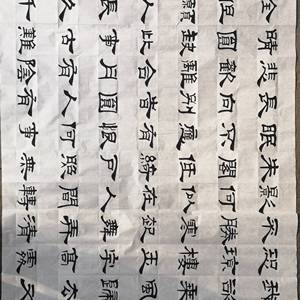 我欲乘風歸去又
恐瓊樓玉宇高處
不勝寒起舞弄清
影何似在人間轉
朱閣低綺戶照無
眠不應有恨何事
長向別時圓人有
悲歡離合月有陰
晴圓缺此事古難
全但願人長久千